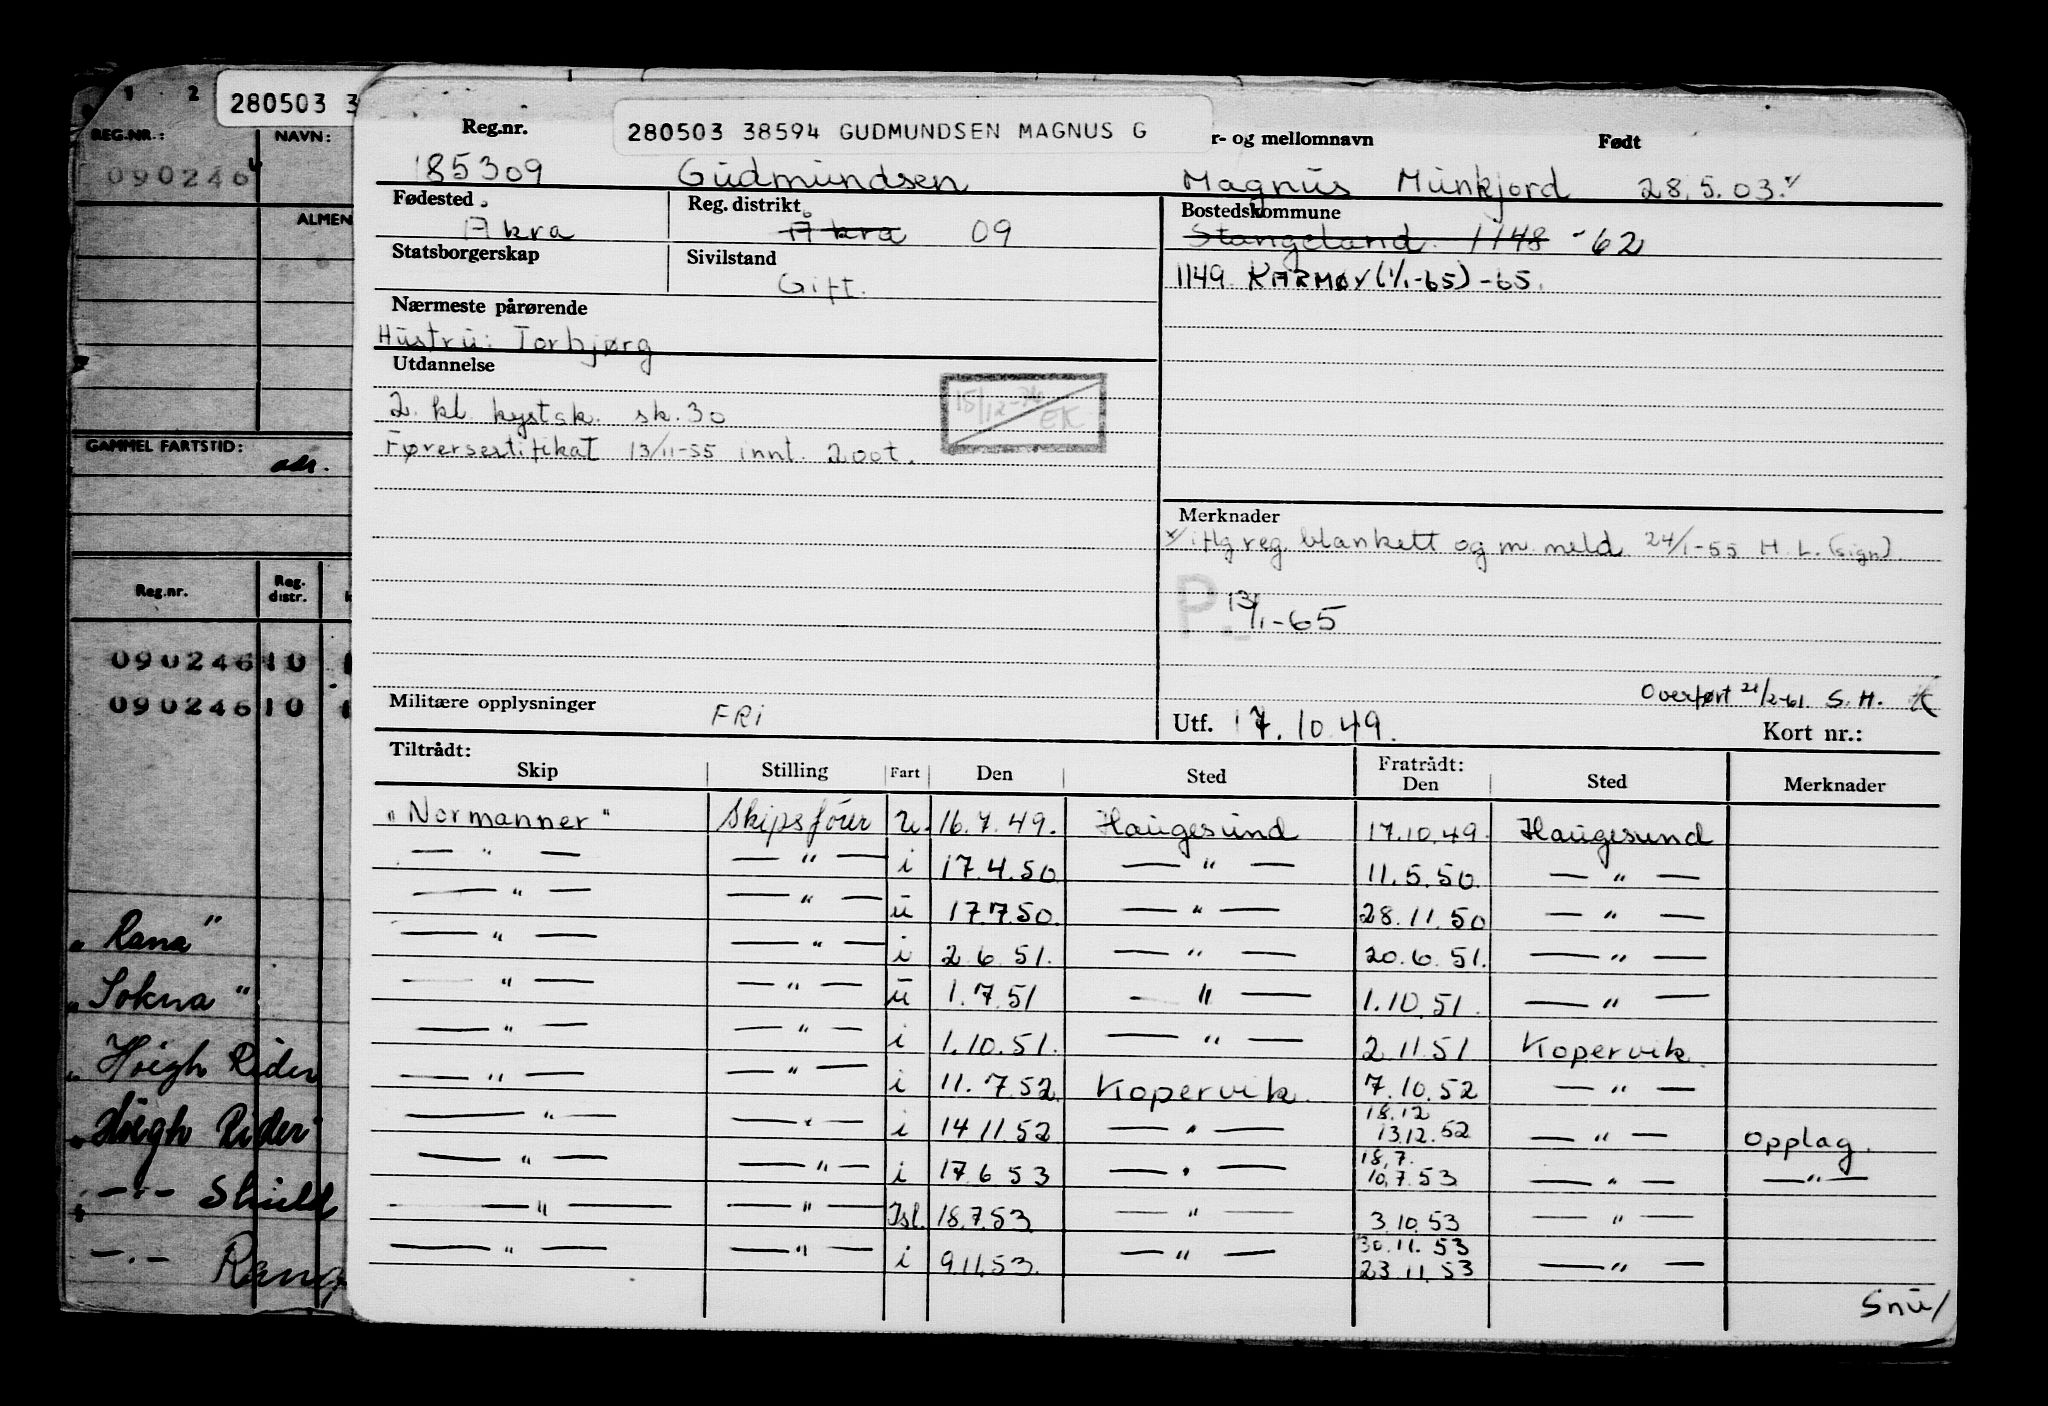 1 2
280503 3
REG.NR.: NAVN:
090246
ALMEN
GAMMEL FARTSTID:
adr.
Reg.nr. Reg. distr.
090246 10 1
090246 10 1
"Rana"
"Sokna"
"Høegh Rider
"Høegh Rider"
— " — Shield
— " — Rang
280503 38594 GUDMUNDSEN MAGNUS G
Reg.nr. r- og mellomnavn Født
185309 Gudmundsen Magnus Munkjord 28.5.03. x/
Fødested Reg. distrikt Bostedskommune
Åkra Åkra 09 Stangeland 1148 -62
Statsborgerskap Sivilstand
Gift. 1149. KARMØY (1/1-65) -65.
Nærmeste pårørende
Hustru: Torbjørg
Utdannelse
2. kl. kystsk. sk. 30
Førersertifikat 13/11-55 innt. 200t.
15/12-76 EK
Merknader
x/ iflg reg blankett og m. meld 24/1-55 H. L. (sign)
P. 13/1-65
Overført 21/2-61. S. H.
Militære opplysninger FRI
Utf. 17.10.49. Kort nr.:
Tiltrådt: Fratrådt:
Skip Stilling Fart Den Sted Den Sted Merknader
"Normanner" Skipsfører U. 16.7.49. Haugesund 17.10.49. Haugesund
— " — — " — i 17.4.50 — " — 11.5.50. — " —
— " — — " — u 17.7.50. — " — 28.11.50 — " —
— " — — " — i 2.6.51. — " — 20.6.51. — " —
— " — — " — u 1.7.51 — " — 1.10.51. — " —
— " — — " — i 1.10.51. — " — 2.11.51 Kopervik
— " — — " — i 11.7.52 Kopervik. 7.10.52 — " —
— " — — " — i 14.11.52 — " — 18.12 13.12.52 — " — Opplag.
— " — — " — i 17.6.53 — " — 18.7. 10.7.53 — " — — " —
— " — — " — Isl. 18.7.53 — " — 3.10.53 — " —
— " — — " — i 9.11.53. — " — 30.11.53 23.11.53 — " —
Snu/